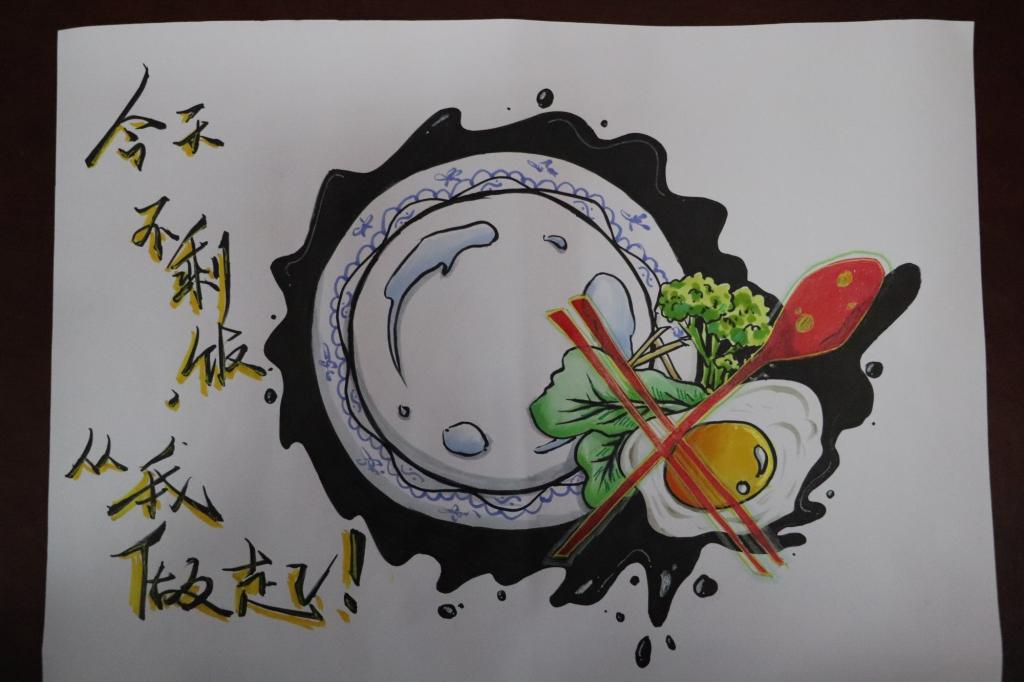 今天
不剩
饭.
从我
做起!